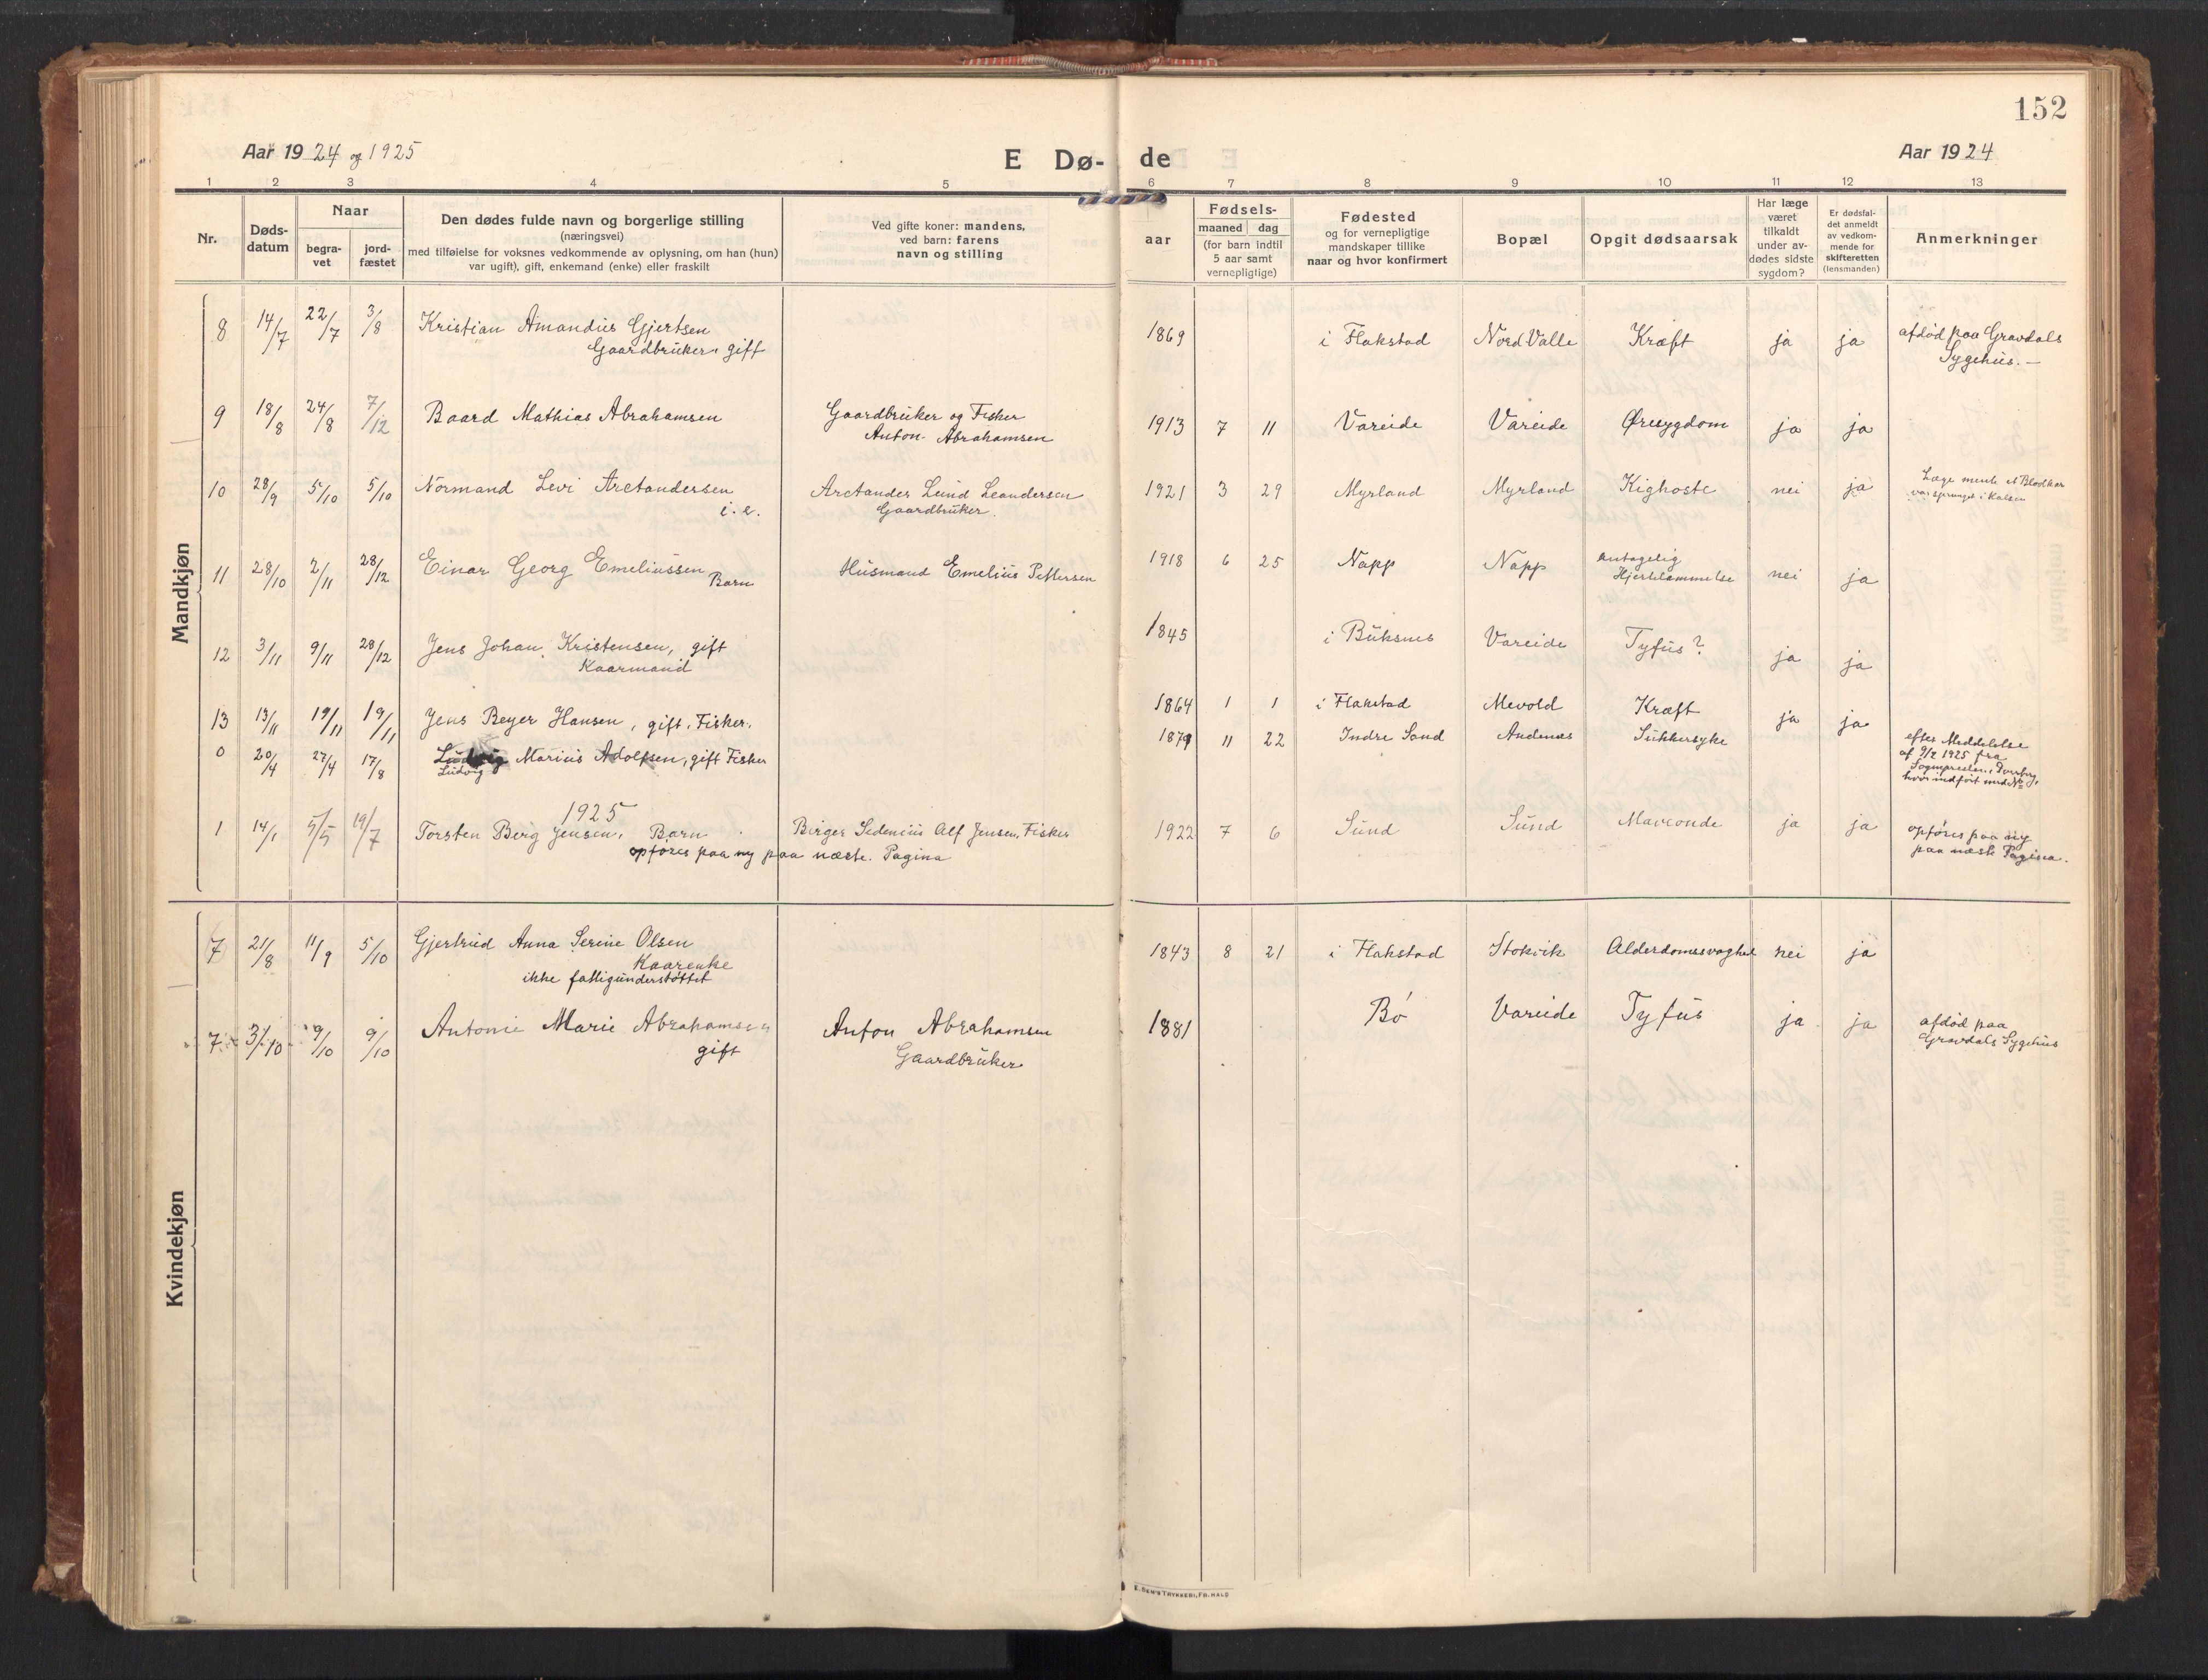 152
Aar 1924 og 1925
E Dø- de
Aar 1924
1 2 3 4 5 6 7 8 9 10 11 12 13
Nr.
Døds-
datum
Naar
begra-
vet
jord-
fæstet
Den dødes fulde navn og borgerlige stilling
(næringsvei)
med tilføielse for voksnes vedkommende av oplysning, om han (hun)
var ugift), gift, enkemand (enke) eller fraskilt
Ved gifte koner: mandens,
ved barn: farens
navn og stilling
aar
Fødsels-
maaned dag
(for barn indtil
5 aar samt
vernepligtige)
Fødested
og for vernepligtige
mandskaper tillike
naar og hvor konfirmert
Bopæl
Opgit dødsaarsak
Har læge
været
tilkaldt
under av-
dødes sidste
sygdom?
Er dødsfal-
det anmeldt
av vedkom-
mende for
skifteretten
(lensmanden)
Anmerkninger
Mandkjøn
8 14/7 22/7 3/8 Kristian Amandus Gjertsen 1869 i Flakstad Nord Valle Kræft ja ja afdød paa Gravdals
Gaardbruker, gift Sygehus. –
9 18/8 24/8 7/12 Baard Mathias Abrahamsen Gaardbruker og Fisker 1913 7 11 Vareide Vareide Øresygdom ja ja
Anton Abrahamsen
10 28/9 5/10 5/10 Normand Levi Arctandersen Arctander Lund Leandersen 1921 3 29 Myrland Myrland Kighoste nei ja Læge mente et Blodkar
i. e. Gaardbruker. var sprunget i Halsen
11 28/10 2/11 28/12 Einar Georg Emeliussen Husmand Emelius Pettersen 1918 6 25 Napp Napp antagelig nei ja
Barn Hjertelammelse
12 3/11 9/11 28/12 Jens Johan Kristensen, gift 1845 i Buksnes Vareide Tyfus? ja ja
Kaarmand
13 13/11 19/11 19/11 Jens Beyer Hansen, gift, Fisker. 1864 1 1 i Flakstad Mevold Kræft ja ja
0 20/4 27/4 17/8 Ludvig Marius Adolfsen, gift Fisker 1879 11 22 Indre Sand Andenes Sukkersyke efter Meddelelse
Ludvig af 9/2 1925 fra
Sognepresten i
hvor indført under No
1925
1 14/1 5/5 19/7 Torsten Berg Jensen, Barn Birger Sedenius Alf Jensen, Fisker 1922 7 6 Sund Sund ja ja opføres paa ny
opføres paa ny paa næste Pagina paa næste Pagina.
Kvindekjøn
7 21/8 11/9 5/10 Gjertrud Anna Serine Olsen 1843 8 21 i Flakstad Stokvik Alderdomssvaghed nei ja
Kaarenke
ikke fattigunderstøttet
7 3/10 9/10 9/10 Antonie Marie Abrahamsen Anton Abrahamsen 1881 Bø Vareide Tyfus ja ja afdød paa
gift Gaardbruker Gravdals Sygehus